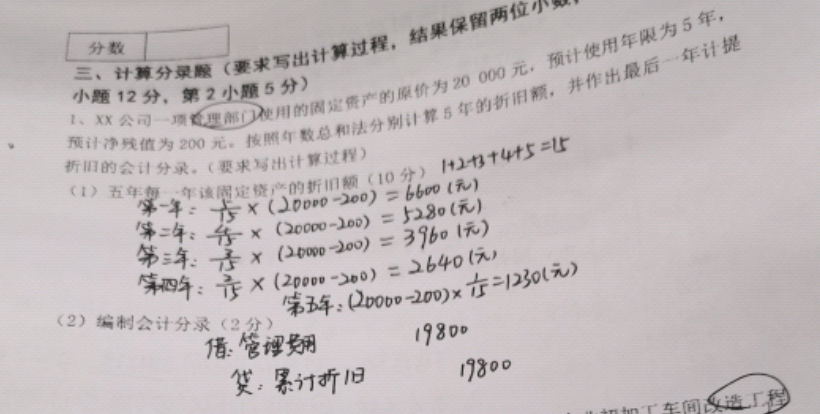 分数
三、计算分录题（要求写出计算过程，结果保留两位小数，
小题12分，第2小题5分）
1、XX公司一项管理部门使用的固定资产的原价为20 000元，预计使用年限为5年，
预计净残值为200元。按照年数总和法分别计算5年的折旧额，并作出最后一年计提
折旧的会计分录。（要求写出计算过程）
（1）五年每一年该固定资产的折旧额（10分） 1+2+3+4+5=15
第一年：5/15×(20000-200)=6600(元)
第二年：4/15×(20000-200)=5280(元)
第三年：3/15×(20000-200)=3960(元)
第四年：2/15×(20000-200)=2640(元)
第五年：(20000-200)×1/15=1230(元)
（2）编制会计分录（2分）
借：管理费用 19800
贷：累计折旧 19800
初加工车间改造工程